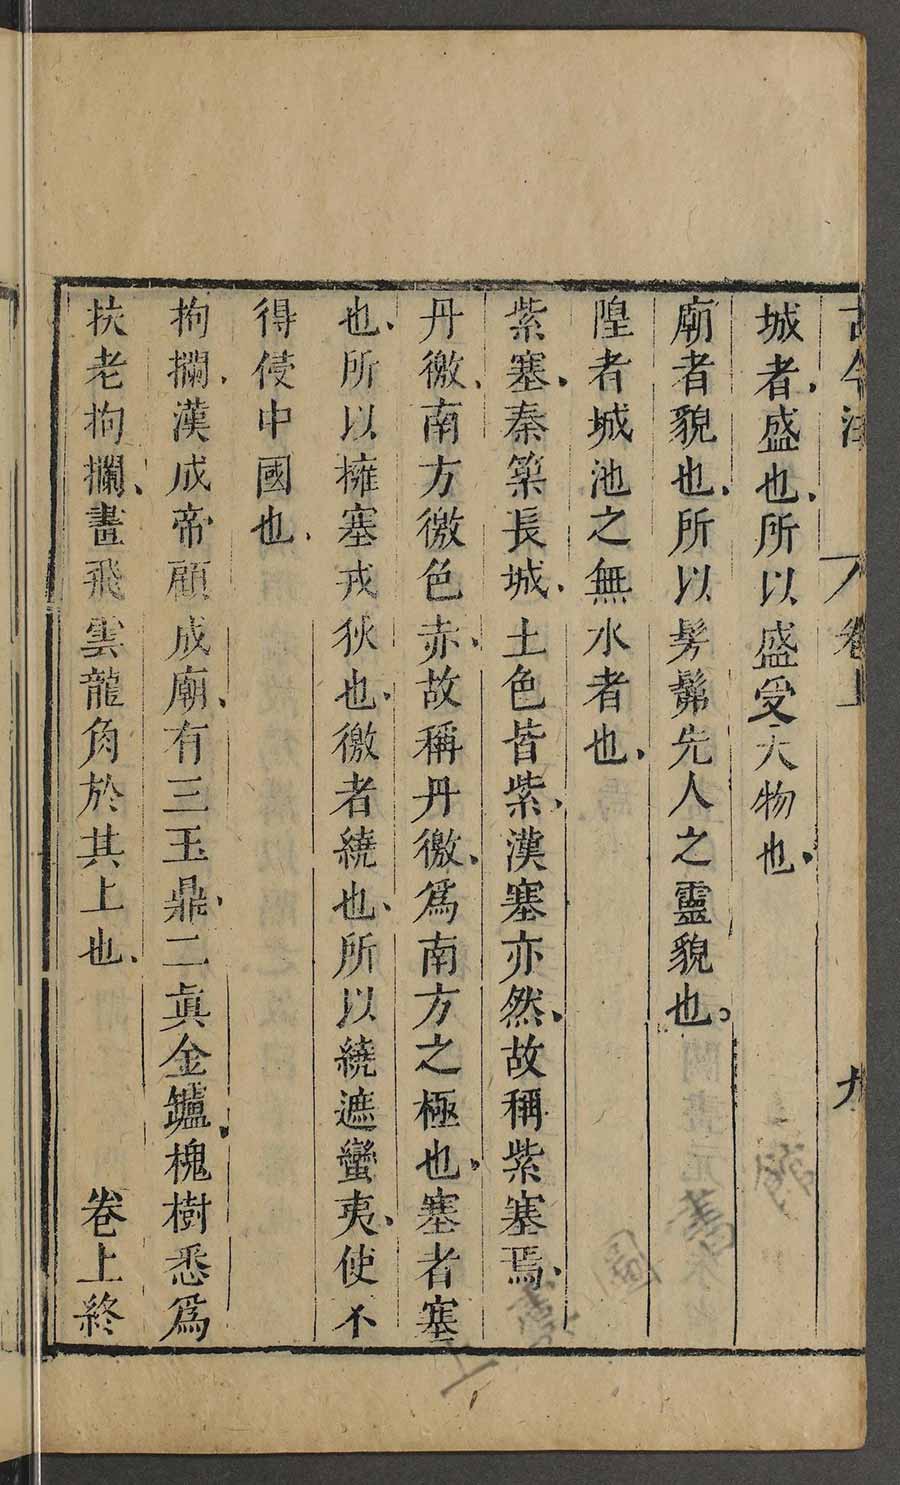 古今注 卷上 九
城者、盛也、所以盛受大物也、
廟者貌也、所以髣髴先人之靈貌也。
隍者城池之無水者也、
紫塞、秦築長城、土色皆紫、漢塞亦然、故稱紫塞焉、
丹徼、南方徼色赤、故稱丹徼、爲南方之極也、塞者塞
也、所以擁塞戎狄也、徼者繞也、所以繞遮蠻夷、使不
得侵中國也、
拘攔、漢成帝顧成廟、有三玉鼎、二眞金鑪、槐樹悉爲
扶老拘攔、畫飛雲龍角於其上也、 卷上終